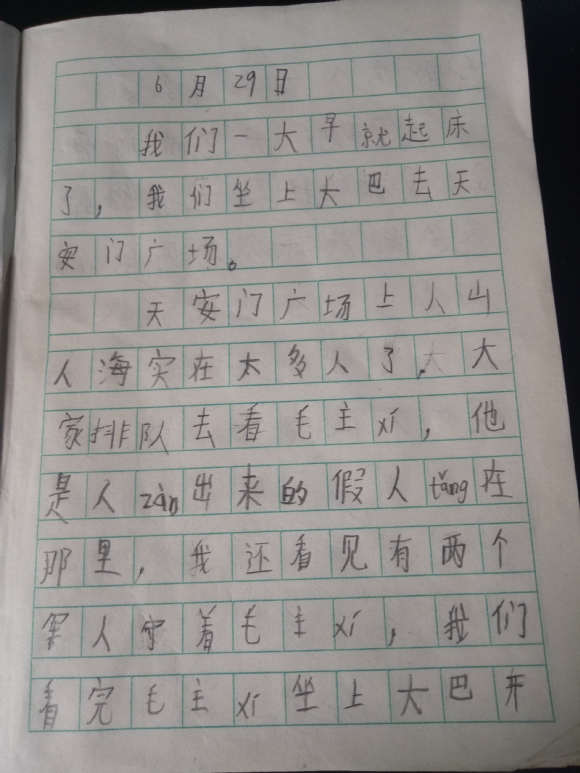 6月29日
我们一大早就起床
了，我们坐上大巴去天
安门广场。
天安门广场上人山
人海实在太多人了。大
家排队去看毛主xí，他
是人zàn出来的假人tǎng在
那里，我还看见有两个
军人守着毛主xí，我们
看完毛主xí坐上大巴开